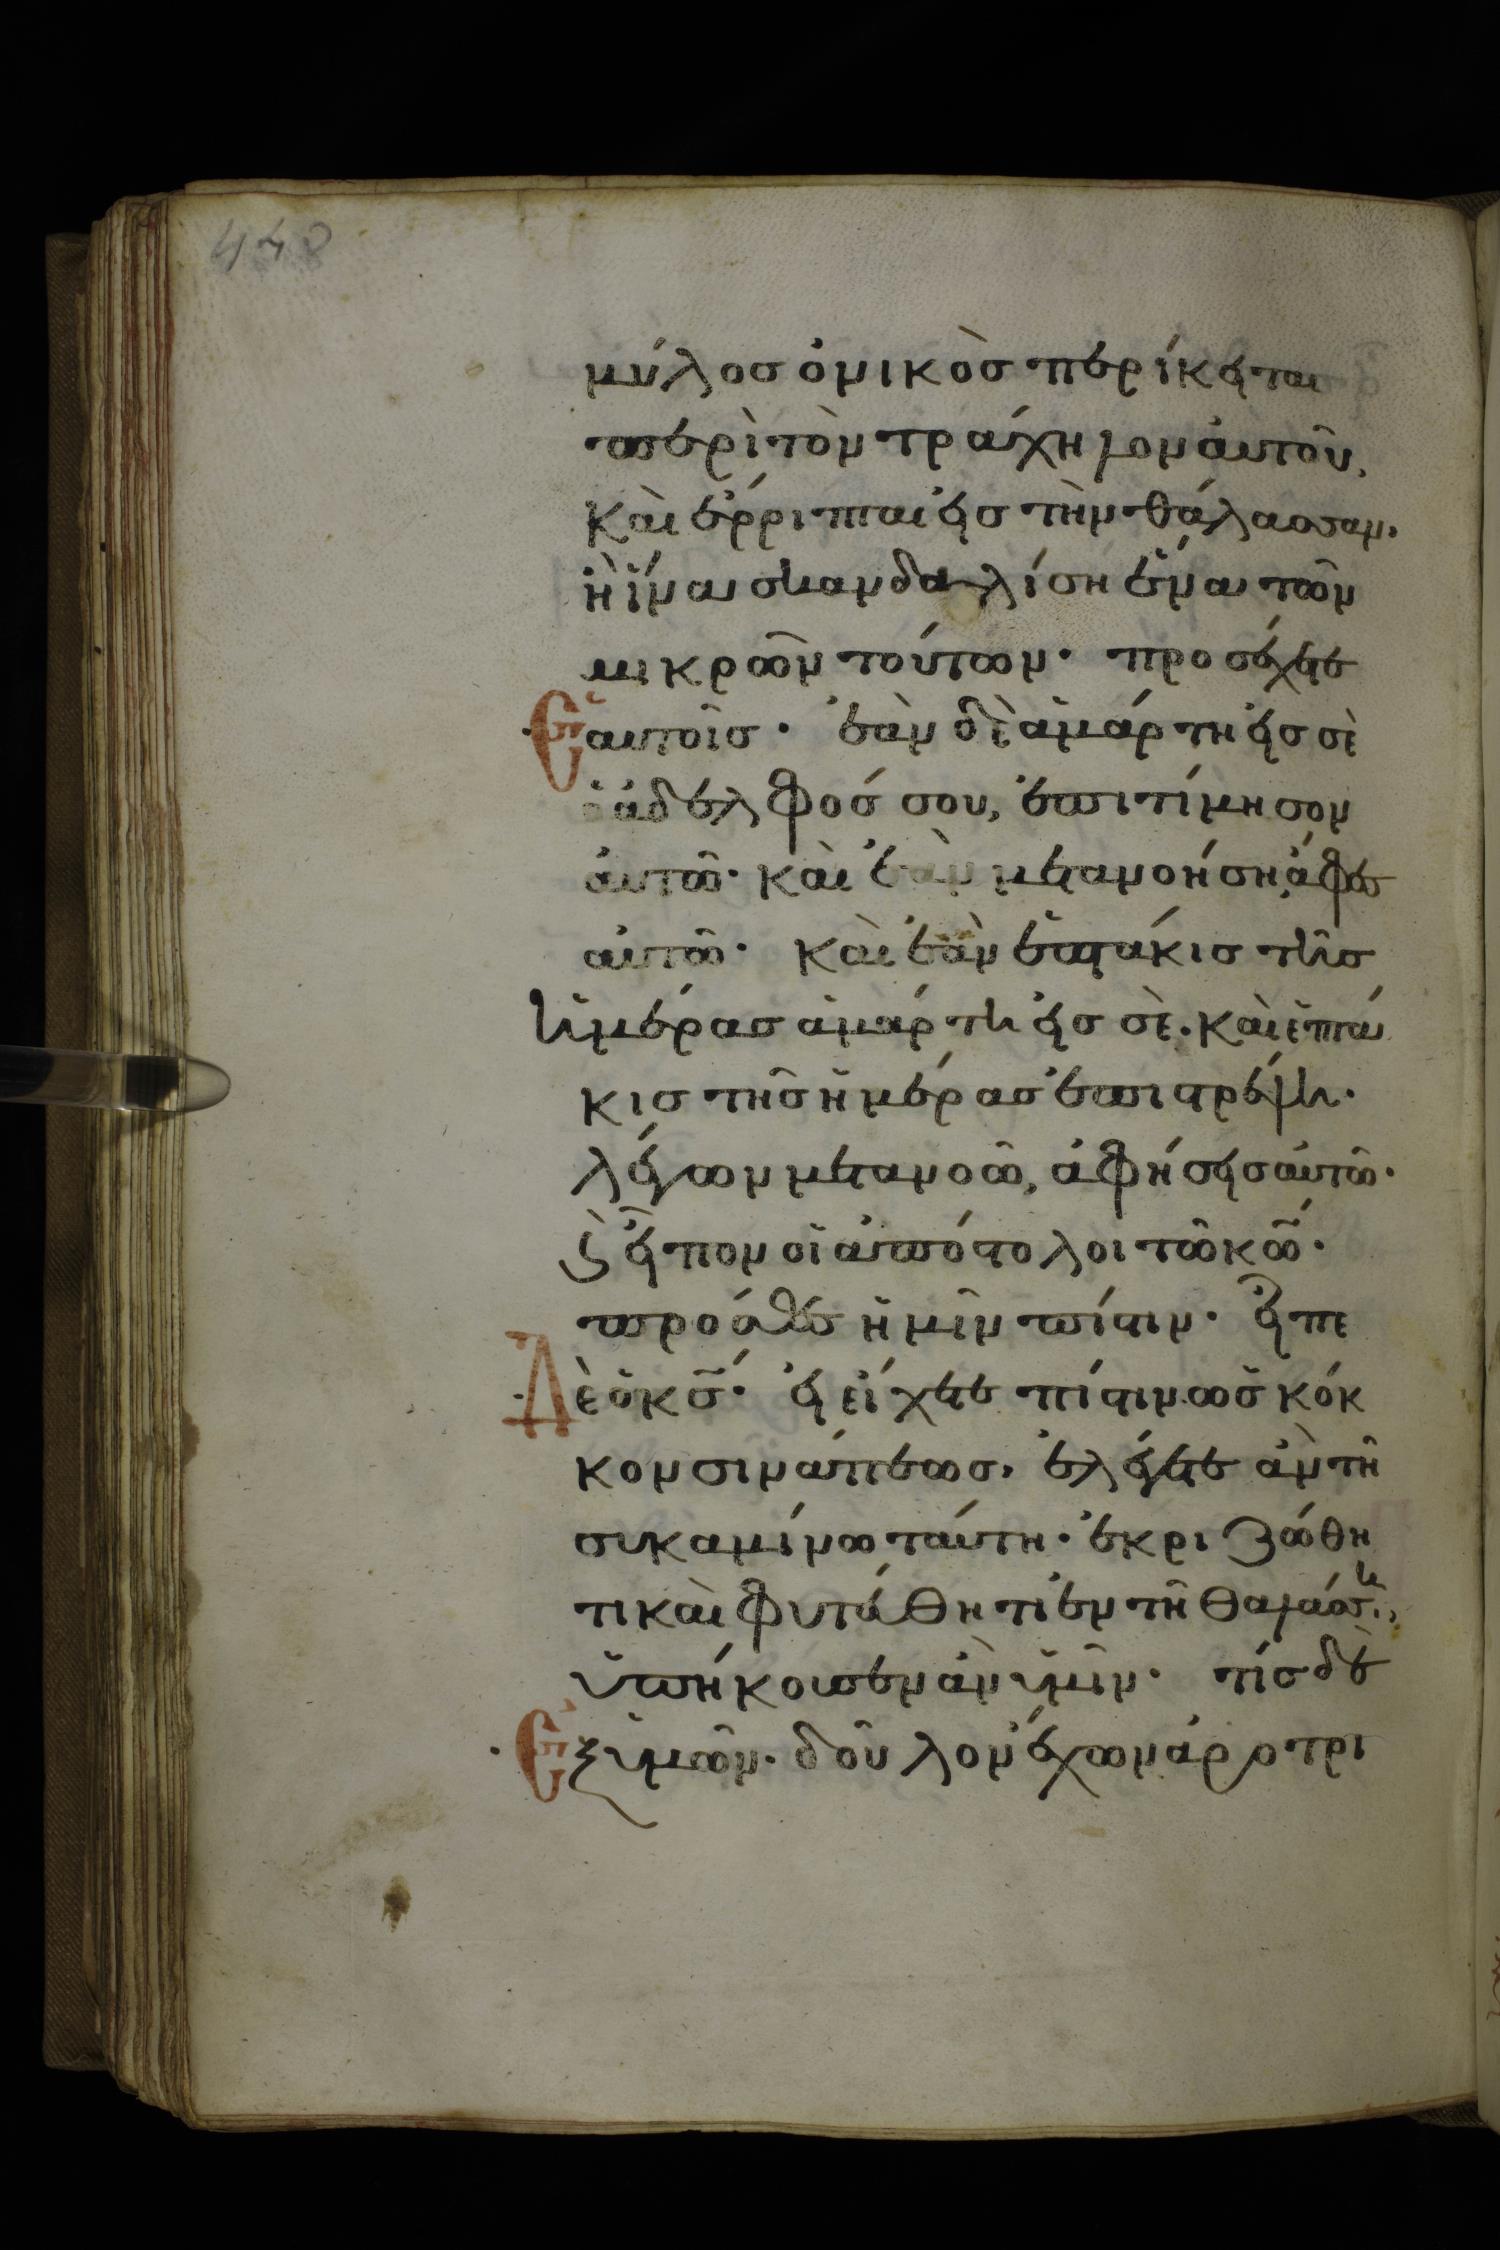 448
μύλος ὀνικὸς περίκειται
περὶ τὸν τράχηλον αὐτοῦ,
καὶ ἔρριπται εἰς τὴν θάλασσαν,
ἢ ἵνα σκανδαλίση ἕνα τῶν
μικρῶν τούτων· προσέχετε
Ἑαυτοῖς· ἐὰν δὲ ἁμάρτη εἰς σὲ
ὁ ἀδελφός σου, ἐπιτίμησον
αὐτῶ· καὶ ἐὰν μετανοήση, ἄφες
αὐτῶ· καὶ ἐὰν ἑπτάκις τῆς
ἡμέρας ἁμάρτη εἰς σὲ. καὶ ἑπτά
κις τῆς ἡμέρας ἐπιστρέψη·
λέγων μετανοῶ, ἀφήσεις αὐτῶ·
ϛ̀ εἶπον οἱ ἀπόστολοι τῶ κῶ·
πρόσθες ἡμῖν πίστιν· εἶπε
Δὲ ὁ κσ· εἰ εἴχετε πίστιν ὡς κόκ
κον σινάπεως, ἐλέγετε ἂν τῆ
συκαμίνω ταύτη· ἐκριζώθη
τι καὶ φυτεύθητι ἐν τῆ θαλάσση,
ὑπήκουσεν ἂν ὑμῖν· τίς δὲ
Ἐξ ὑμῶν· δοῦλον ἔχων ἀροτρι